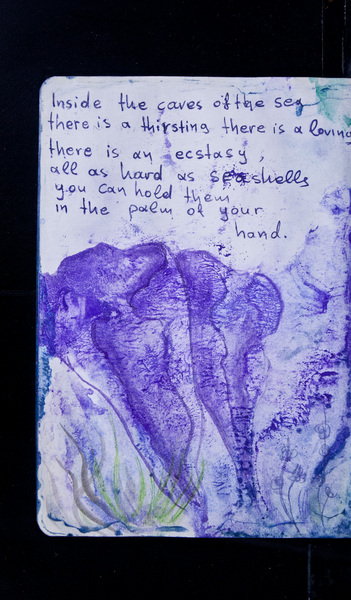 Inside the caves of the sea
there is a thirsting there is a loving
there is an ecstasy,
all as hard as seashells
you can hold them
in the palm of your
hand.